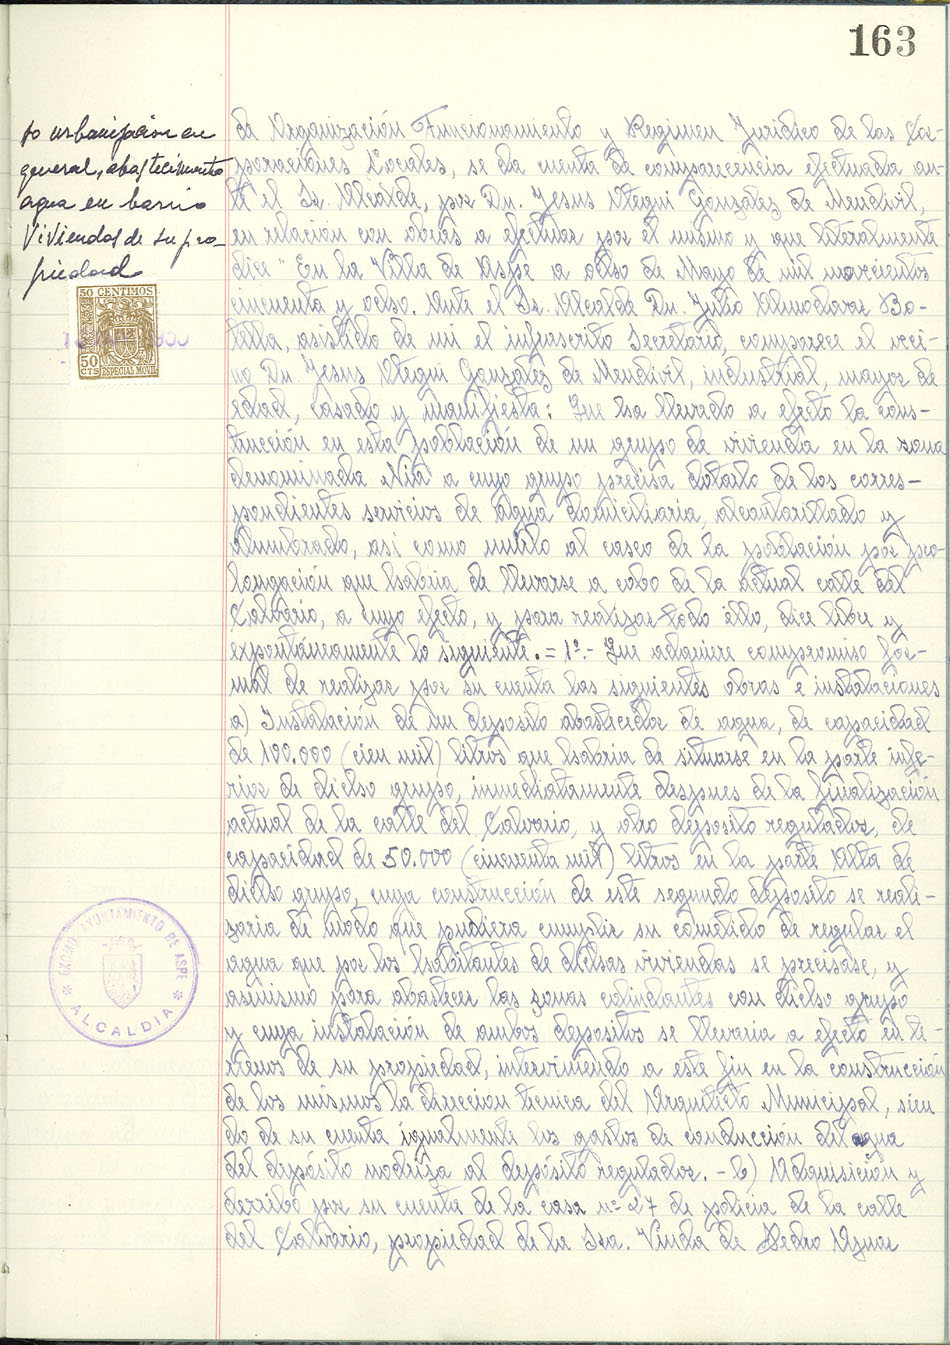 163
to urbanización en
general, abastecimiento
agua en barrio
Viviendas de su pro-
piedad
50 CENTIMOS
50
CTS
ESPECIAL MOVIL
EXCMO. AYUNTAMIENTO DE ASPE
* ALCALDIA *
de Organización Funcionamiento y Regimen Juridico de las Cor-
poraciones Locales, se da cuenta de comparecencia efectuada an-
te el Sr. Alcalde, por Dn. Jesus Otegui Gonzalez de Mendivil,
en relación con obras a efectuar por el mismo y que literalmente
dice " En la Villa de Aspe a ocho de Mayo de mil novecientos
cincuenta y ocho. Ante el Sr. Alcalde Dn. Julio Almodovar Bo-
tella, asistido de mi el infrascrito Secretario, comparece el veci-
no Dn. Jesus Otegui Gonzalez de Mendivil, industrial, mayor de
edad, casado y manifiesta: Que ha llevado a efecto la cons-
trucción en esta población de un grupo de vivienda en la zona
denominada Nia a cuyo grupo precisa dotarlo de los corres-
pondientes servicios de agua domiciliaria, alcantarillado y
Alumbrado, así como unirlo al casco de la población por pro-
longación que habria de llevarse a cabo de la actual calle del
Calvario, a cuyo efecto, y para realizar todo ello, dice libre y
expontáneamente lo siguiente. = 1º.- Que adquiere compromiso for-
mal de realizar por su cuenta las siguientes obras e instalaciones
a) Instalación de un deposito abastecedor de agua, de capacidad
de 100.000 (cien mil) litros que habria de situarse en la parte infe-
rior de dicho grupo, inmediatamente despues de la finalización
actual de la calle del Calvario, y otro deposito regulador, de
capacidad de 50.000 (cincuenta mil) litros en la parte Alta de
dicho grupo, cuya construcción de este segundo deposito se reali-
zaria de modo que pudiera cumplir su cometido de regular el
agua que por los habitantes de dichas viviendas se precisase, y
asimismo para abastecer las zonas colindantes con dicho grupo
y cuya instalación de ambos depositos se llevaria a efecto en te-
rrenos de su propiedad, interviniendo a este fin en la construcción
de los mismos la dirección tecnica del Arquitecto Municipal, sien
do de su cuenta igualmente los gastos de conducción del agua
del depósito nodriza al depósito regulador. - b) Adquisición y
derribo por su cuenta de la casa nº 27 de policia de la calle
del Calvario, propiedad de la Sra. Viuda de Pedro Aznar